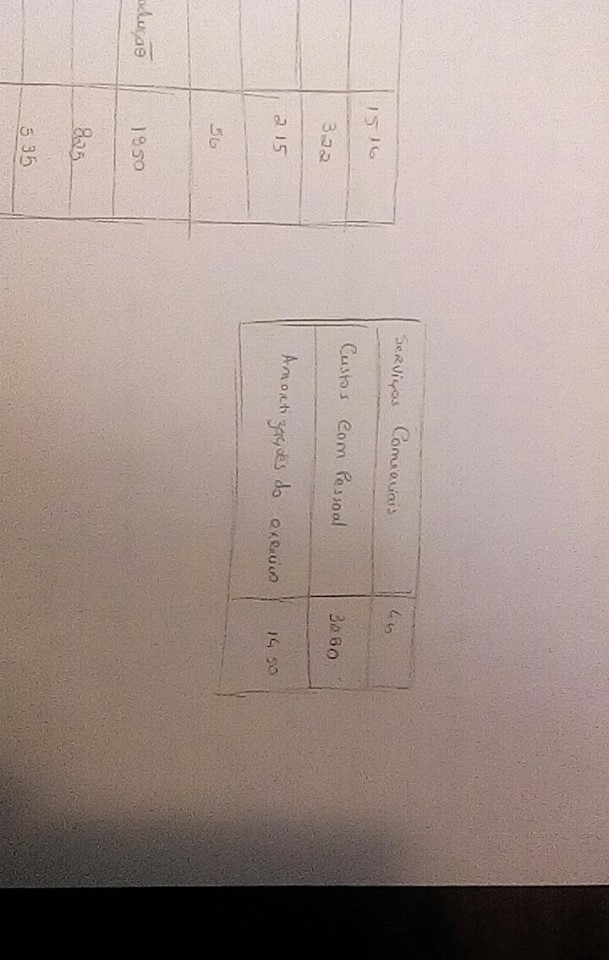 1516
322
215
56
odução 1850
825
535
Serviços Comerciais
Custos com Pessoal 3080
Amortizações do exercivo 1450